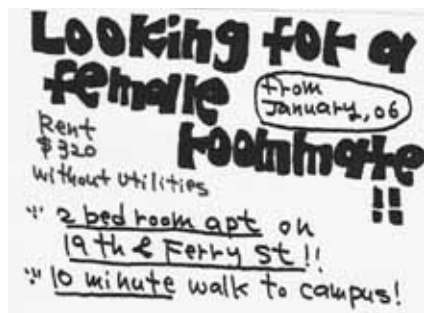 Looking for a
female
from
January, 06
roommate
!!
Rent
$320
without utilities
2 bed room apt on
19th & Ferry St!!
10 minute walk to campus!